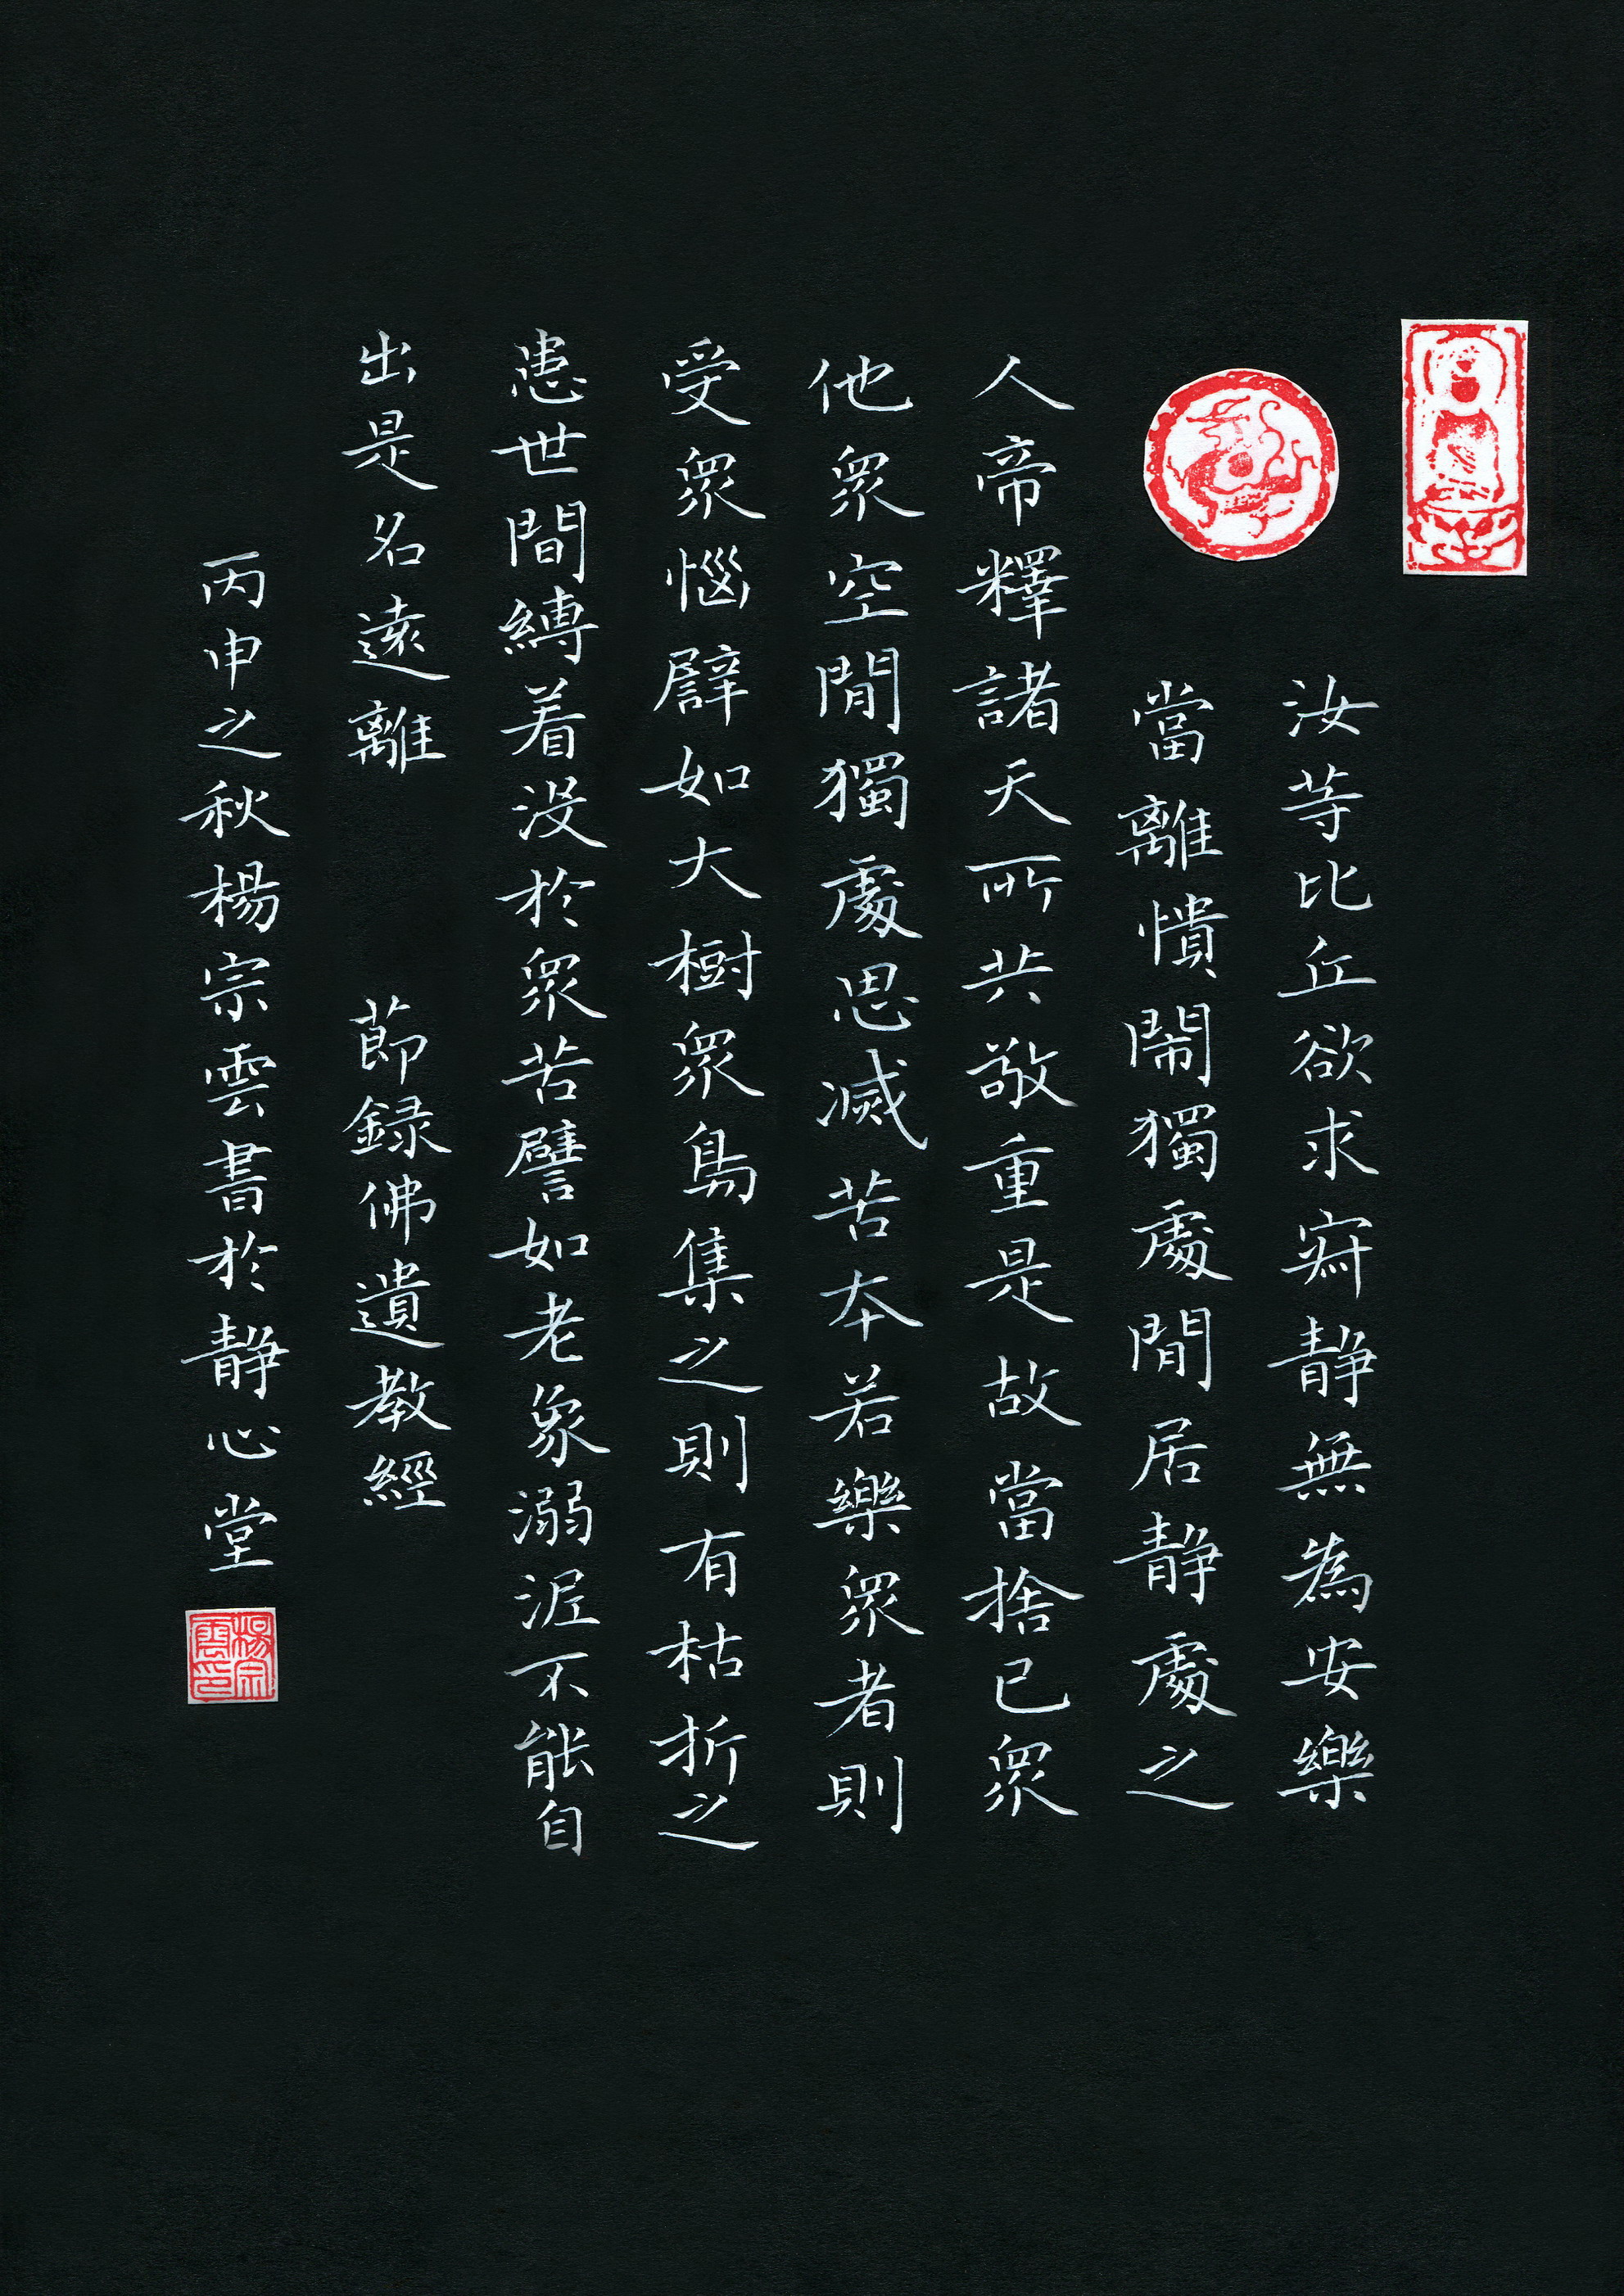 汝等比丘欲求寂静無為安樂
當離憒閙獨處閒居静處之
人帝釋諸天所共敬重是故當捨已衆
他衆空閒獨處思滅苦本若樂衆者則
受衆惱譬如大樹衆鳥集之則有枯折之
患世間縛着没於衆苦譬如老象溺泥不能自
出是名遠離 節録佛遺教經
丙申之秋楊宗雲書於静心堂
楊宗雲印